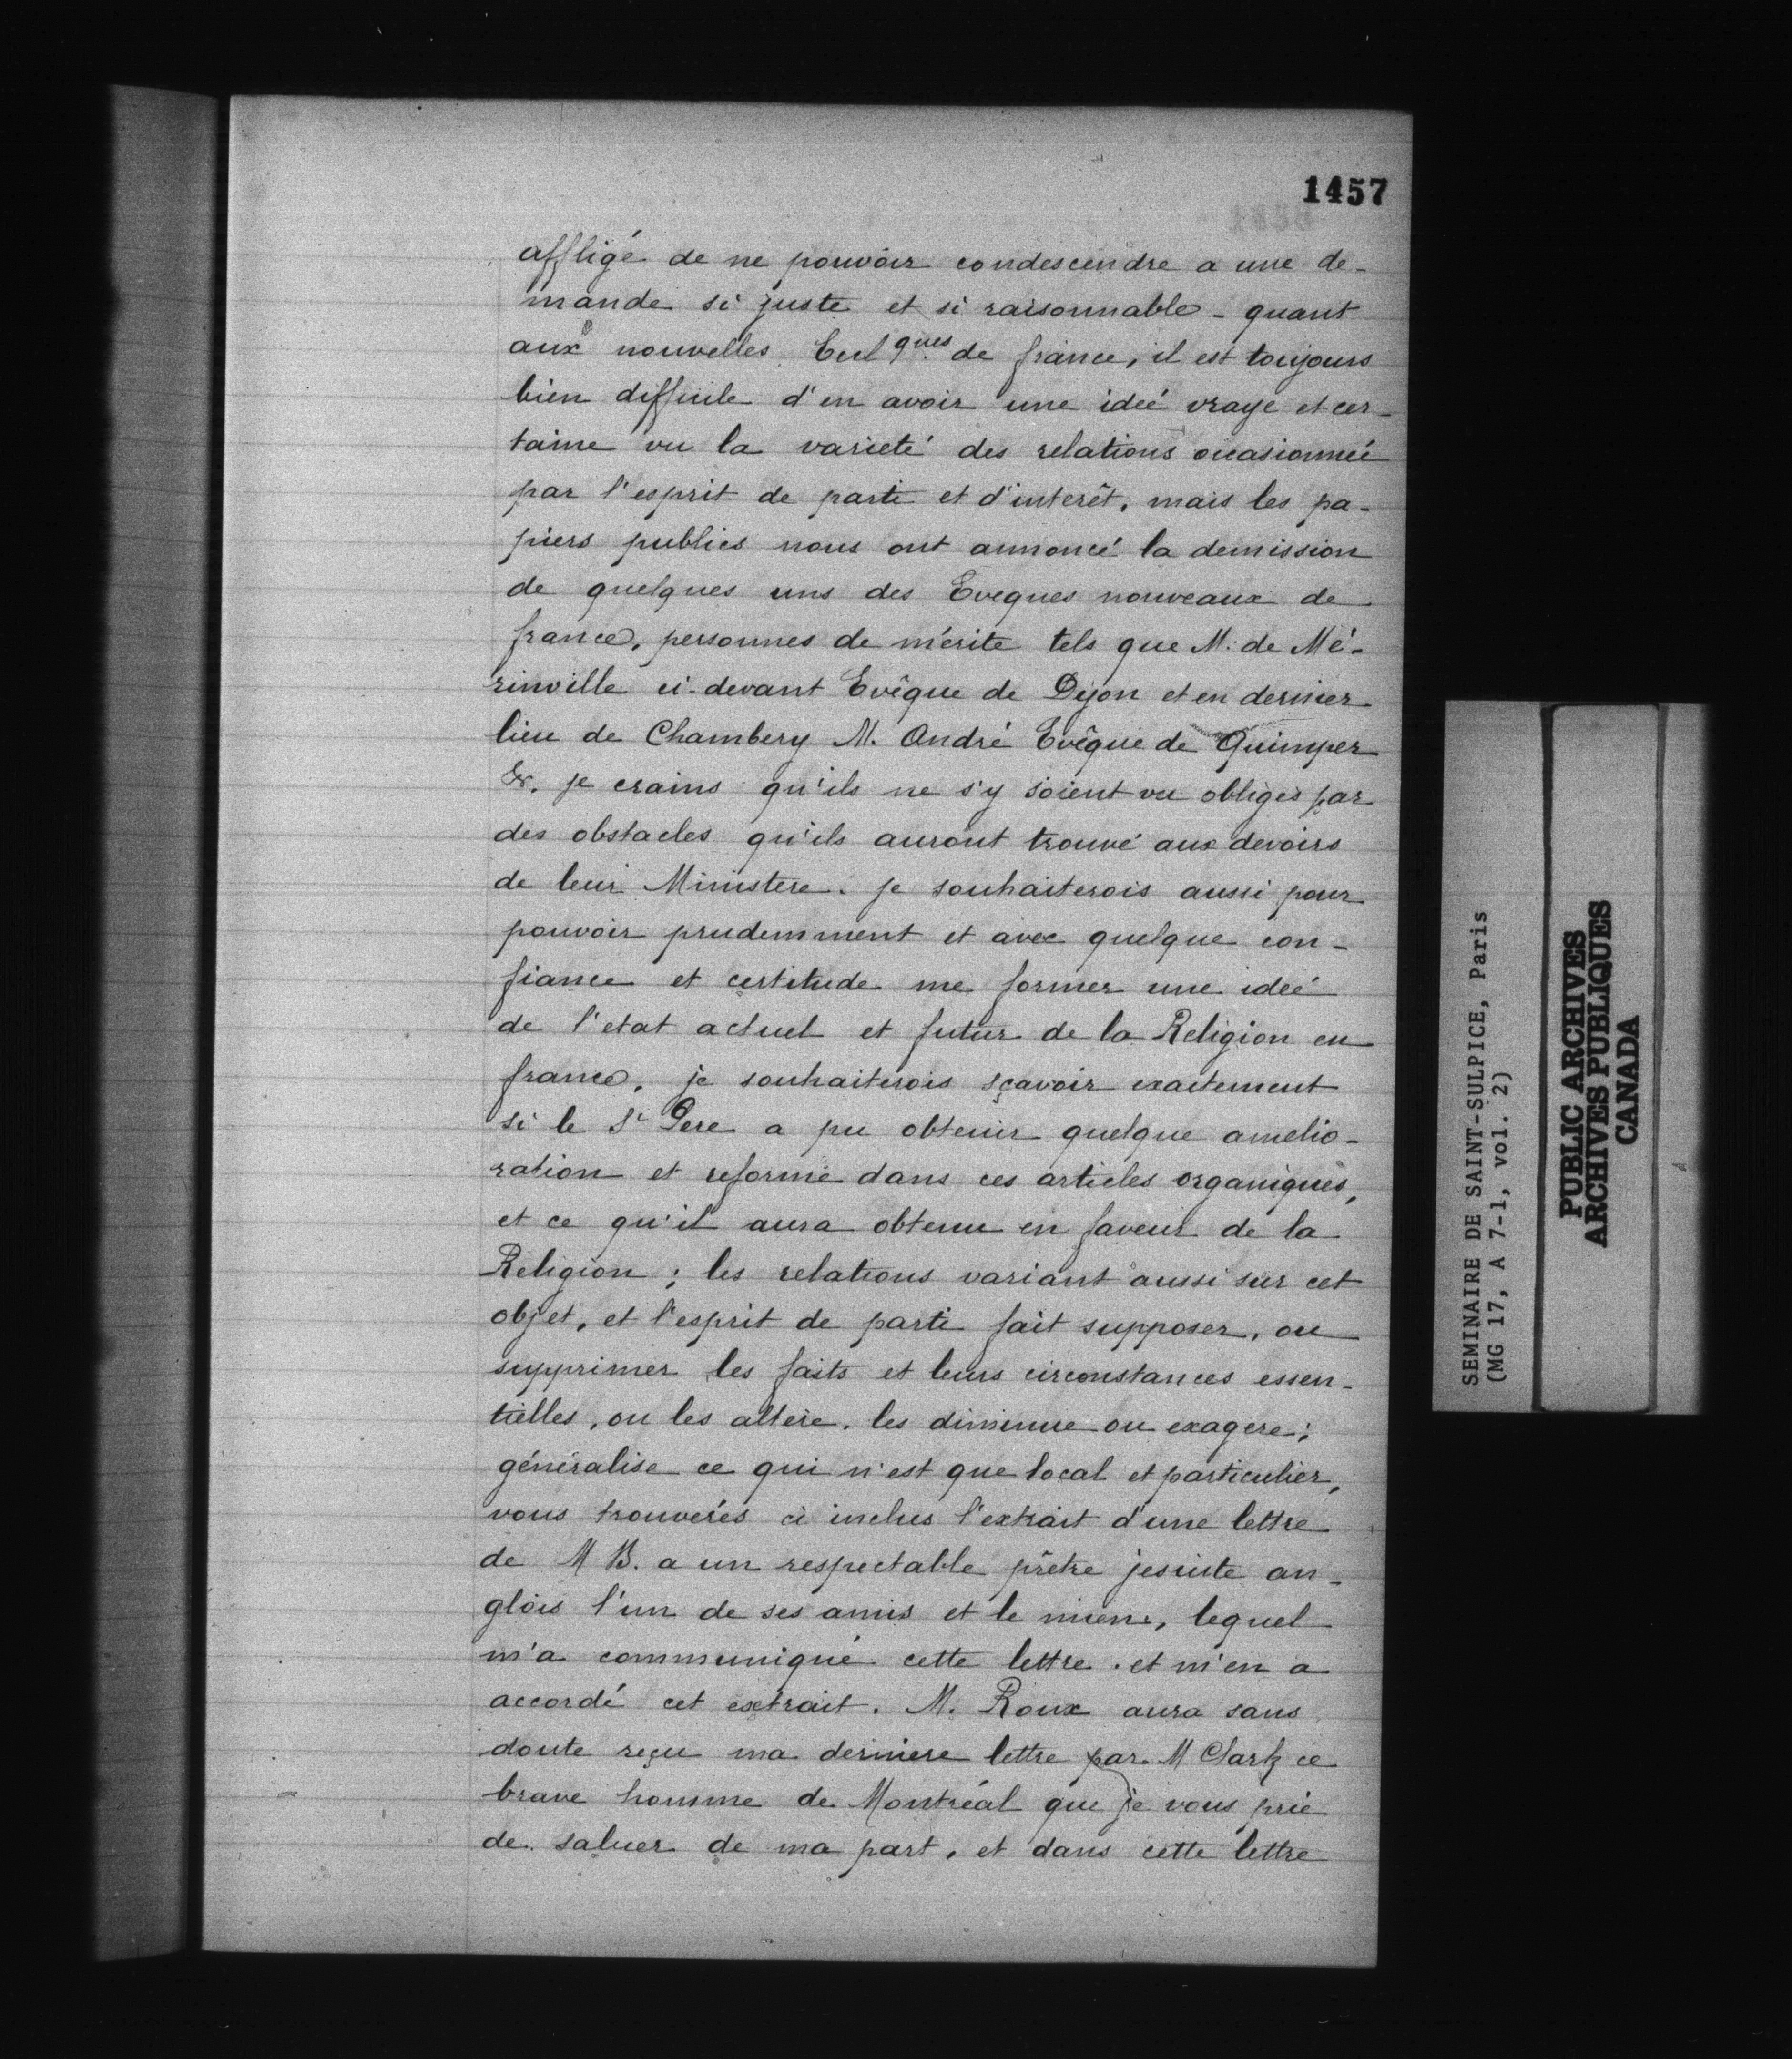 1457
affligé de ne pouvoir condescendre a une de-
mande si juste et si raisonnable - quant
aux nouvelles Eccl ques de france, il est toujours
bien difficile d'en avoir une ideé vraye et cer-
taine vu la varieté des relations occasionneé
par l'esprit de parti et d'interêt, mais les pa-
piers publics nous ont annoncé la demission
de quelques uns des Eveques nouveaux de
france, personnes de mérite tels que M. de Mé-
rinville ci-devant Evêque de Dijon et en dernier
lieu de Chambery M. André Evêque de Quimper
&c. je crains qu'ils ne s'y soient vu obligés par
des obstacles qu'ils auront trouvé aux devoirs
de leur Ministere. je souhaiterois aussi pour
pouvoir prudemment et avec quelque con-
fiance et certitude me former une ideé
de l'etat actuel et futur de la Religion en
france, je souhaiterois sçavoir exactement
si le St Pere a pu obtenir quelque amelio-
ration et reforme dans ces articles organiques,
et ce qu'il aura obtenu en faveur de la
Religion ; les relations variant aussi sur cet
objet, et l'esprit de parti fait supposer, ou
supprimer les faits et leurs circonstances essen-
tielles, ou les altere, les diminue ou exagere ;
généralise ce qui n'est que local et particulier,
vous trouverés ci inclus l'extrait d'une lettre
de M B. a un respectable prêtre jesuite an-
glois l'un de ses amis et le mien, lequel
m'a communiqué cette lettre . et m'en a
accordé cet extrait. M. Roux aura sans
doute reçu ma derniere lettre par M Clark ce
brave homme de Montréal que je vous prie
de saluer de ma part, et dans cette lettre
SEMINAIRE DE SAINT-SULPICE, Paris
(MG 17, A 7-1, vol. 2)
PUBLIC ARCHIVES
ARCHIVES PUBLIQUES
CANADA